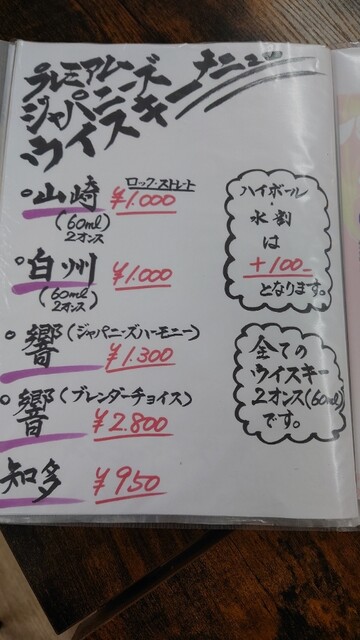 プレミアム
ジャパニーズ
ウイスキーメニュー
ロック・ストレート
○山崎 ¥1.000
(60ml)
2オンス
○白州 ¥1.000
(60ml)
2オンス
○響(ジャパニーズハーモニー)
¥1.300
○響(ブレンダーチョイス)
¥2.800
知多 ¥950
ハイボール
・
水割
は
+100-
となります。
全ての
ウイスキー
2オンス(60ml)
です。